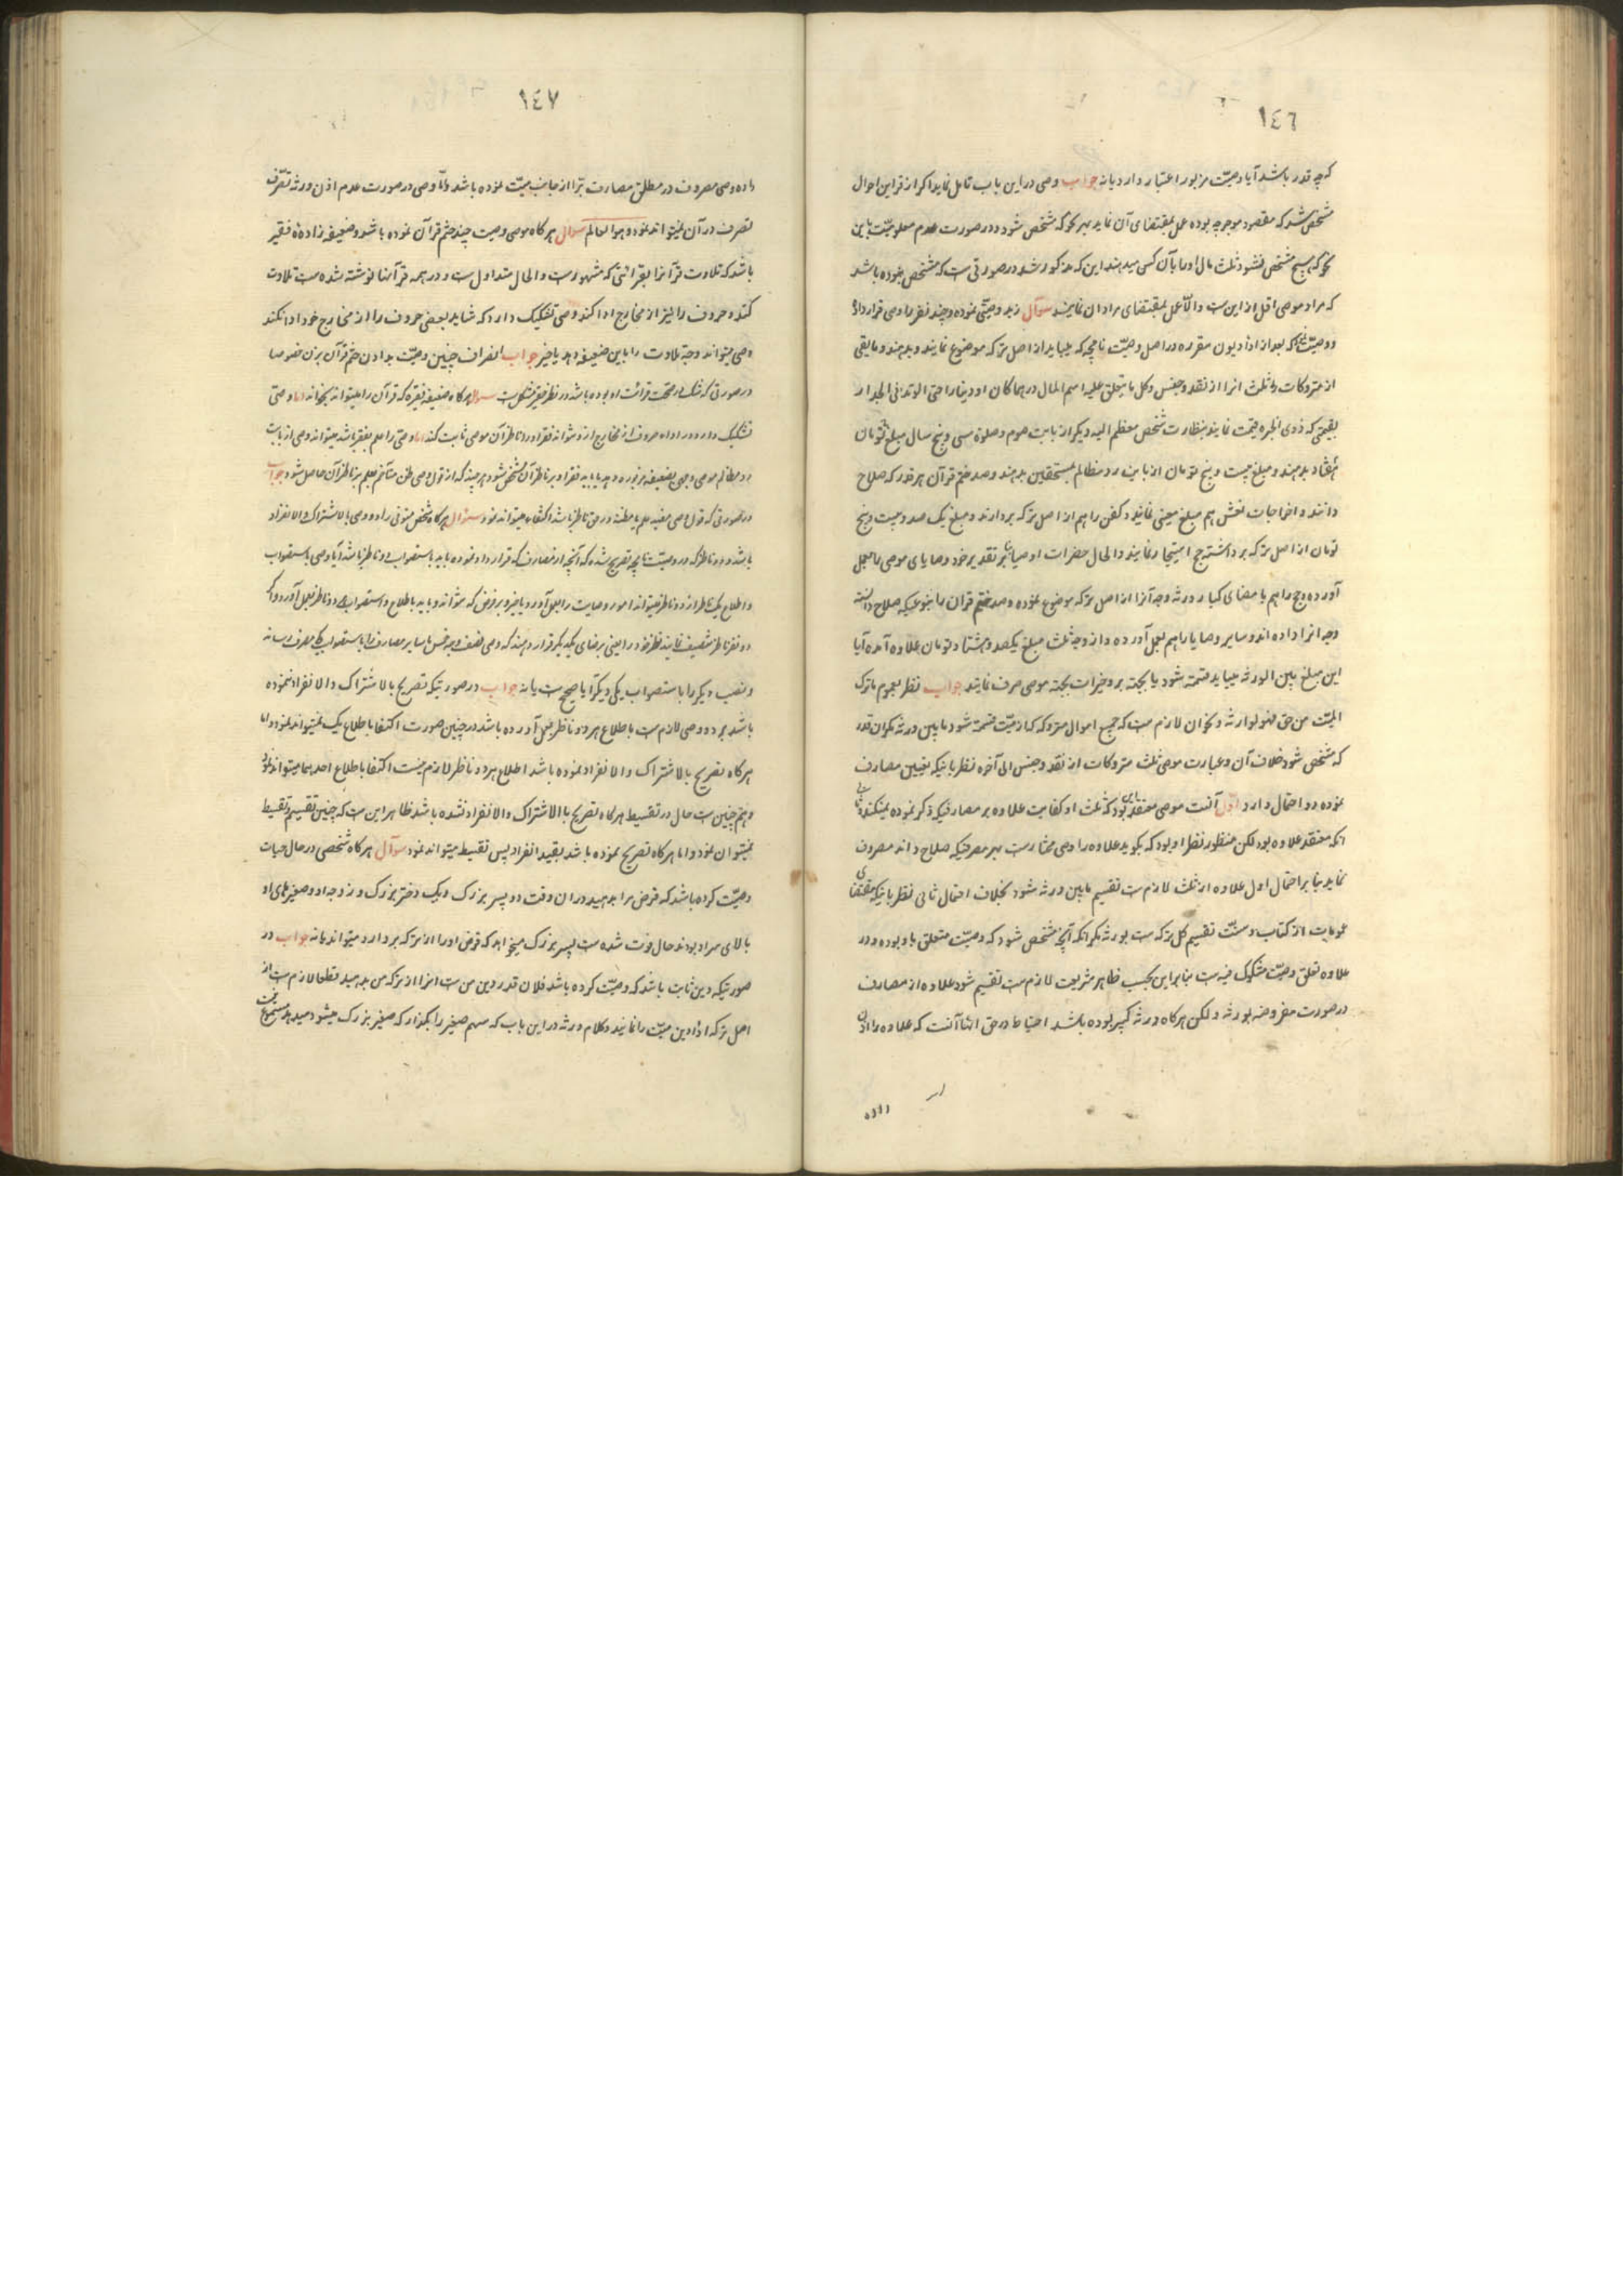 ١٤٦
که چه قدر باشد آیا وصیّت مزبور اعتبار دارد یا نه جواب وصی در این باب تامل نماید اکر از قراین احوال
مشخص شد که مقصود موجر چه بوده عمل بمقتضای آن نماید بهر نحو که مشخص شود و در صورت عدم معلومیّت باین
نحو که هیچ مشخص نشود ثلث مال او را بآن کسی میدهند این که مذکور شد در صورتی ست که مشخص نبوده باشد
که مراد موصی اقل از این ست والّا عمل بمقتضای مراد آن نمایند سوآل زید وصیّتی نموده و چند نفر را وصی قرار داده
و وصیّت که بعد از اداء دیون مقرره در اصل وصیّت نامچه که میباید از اصل ترکه موضوع نمایند و بدهند و مابقی
از متروکات را ثلث انرا از نقد و جنس و کل ما یتعلق علیه اسم المال درهما کان او دینارا حتی الوتد فی الجدار
بقیمتی که ذوی الخبره قیمت نمایند بنظارت شخص معظم الیه دیکر از بابت صوم و صلوة سی و پنج سال مبلغ تومان
هفتاد بدهند و مبلغ بیست و پنج تومان از بابت رد مظالم بمستحقین بدهند و صد ختم قرآن هر قدر که صلاح
دانند و اخراجات نعش هم مبلغ معینی نمایند و کفن را هم از اصل ترکه بردارند و مبلغ یک صد و بیست و پنج
تومان از اصل ترکه برداشته حج استیجار نمایند و الحال حضرات اوصیا بنا بر تقدیر خود وصایای موصی را بعمل
آورده و حج را هم با مضای کبار ورثه وجه آنرا از اصل ترکه موضوع نموده و صد ختم قران را بنوعیکه صلاح دانسته
وجه انرا داده اند و سایر وصایا را هم بعمل آورده و از وجه ثلث مبلغ یکصد و هشتاد تومان علاوه آمده آیا
این مبلغ بین الورثه میباید قسمته شود یا بجهته بر و خیرات بجهته موصی صرف نمایند جواب نظر بعموم ما ترک
المیّت من حق فهو لوارثه و نحو ان لازم ست که جمیع اموال متروکه که از میّت قسمة شود ما بین ورثه مکر ان قدر
که مشخص شود خلاف آن و عبارت موصی ثلث متروکات از نقد و جنس الی آخره نظر بانیکه تعیین مصارف
نموده دو احتمال دارد اوّل آنست موصی معتقد این بود که ثلث او کفایت علاوه بر مصارفیکه ذکر نموده نمیکند
انکه معتقد علاوه بود لکن منظور نظر او بود که بکوید علاوه را وصی مختار ست بهر مصرفیکه صلاح داند مصروف
نماید بنا بر احتمال اول علاوه از ثلث لازم ست تقسیم مابین ورثه شود بخلاف احتمال ثانی نظر بانیکه مقتضای
عمومات از کتاب و سنّت تقسیم کل ترکه ست بورثه مکر انکه آنچه مشخص شود که وصیّت متعلق باو بوده و در
علاوه تعلق وصیّت مشکوک فیه ست بنا براین بحسب ظاهر شریعت لازم ست تقسیم شود علاوه از مصارف
در صورت مفروضه بورثه و لکن هرکاه ورثه کبیر بوده باشند احتیاط در حق انها آنست که علاوه را اذن
داده
١٤٧
داده وصی مصروف در مطلق مصارف برّا از جانب میّت نموده باشد والّا وصی در صورت عدم اذن ورثه تصرّف
تصرف در آن نمیتواند نمود و هو العالم سوآل هرکاه موصی وصیت چند ختم قرآن نموده باشد و ضعیفه زاده فقیر
باشد که تلاوت قرآنرا بقرائتی که مشهور ست و الحال متداول ست و در همه قرآنها نوشته شده ست تلاوت
کند و حروف را نیز از مخارج ادا کند وصی تشکیک دارد که شاید بعضی حروف را از مخارج خود ادا نکند
وصی میتواند وجه تلاوت را باین ضعیفه دهد یا خیر جواب انصراف چنین وصیّت بدادن ختم قرآن بزن خصوصا
در صورتی که شک در صحت قرائت او بوده باشد در نظر حقیر مشکل ست سوآل هرکاه ضعیفه فقیره که قرآن را میتواند بخواند اما وصی
تشکیک دارد در اداء حروف از مخارج ازو میتواند فقر او را ناظر آن موصی ثابت کند اما وصی را علم بفقر باشد میتواند وصی از بابت
رد مظالم موصی وجهی بضعیفه مزبوره دهد یا باید فقر او بر ناظر آن مشخص شود هر چند که از قول وصی ظن متآخم بعلم بر ناظر آن حاصل شود جواب
در صورتی که قول وصی مفید علم یا مظنه در حق ناظر باشد اکتفاء میتواند نمود سئوال هرکاه شخص متوفی را دو وصی بالاشتراک و الانفراد
باشد و دو ناظر که در وصیّت نامچه تصریح شده که آنچه از مصارف که قرار داد نموده باید باستصواب دو ناظر باشد آیا وصی باستصواب
و اطلاع یک ناظر از دو ناظر میتواند امور وصایت را بعمل آورد یا خیر و بر فرض که نتواند و باید باطلاع و استصواب دو ناظر بعمل آورد و اکر
دو نفر ناظر تنصیف نمایند نظر خود را یعنی برضای یکدیکر قرار دهند که وصی نصف وجه خمس یا سایر مصارف را باستصواب یکی بمصرف رساند
و نصف دیکر را باستصواب یکی دیکر آیا صحیح ست یا نه جواب در صورتیکه تصریح بالاشتراک و الانفراد ننموده
باشد بر دو وصی لازم ست باطلاع هر دو ناظر بعمل آورده باشد در چنین صورت اکتفا باطلاع یک نمیتواند نمود و اما
هرکاه تصریح بالاشتراک و الانفراد نموده باشد اطلاع هر دو ناظر لازم نیست اکتفا باطلاع احدهما میتواند نمود
و همچنین ست حال در تقسیط هرکاه تصریح باالاشتراک والانفراد نشده باشد ظاهر این ست که چنین تقسیم و تقسیط
نمیتوان نمود و اما هرکاه تصریح نموده باشد بقید انفراد پس تقسیط میتواند نمود سوآل هرکاه شخصی در حال حیات
وصیّت کرده باشد که قرض مرا بدهید در ان وقت دو پسر بزرک و یک دختر بزرک و زوجه او و صغیرهای او
بالای سر او بودند حال فوت شده ست پسر بزرک میخواهد که قرض او را از ترکه بردارد میتواند یا نه جواب در
صورتیکه دین ثابت باشد که وصیّت کرده باشد فلان قدر دین من ست انرا از ترکه من بدهید قطعا لازم ست از
اصل ترکه اداء دین میّت را نمایند و کلام ورثه در این باب که سهم صغیر را بکذار که صغیر بزرک میشود میدهد مسموع نیست